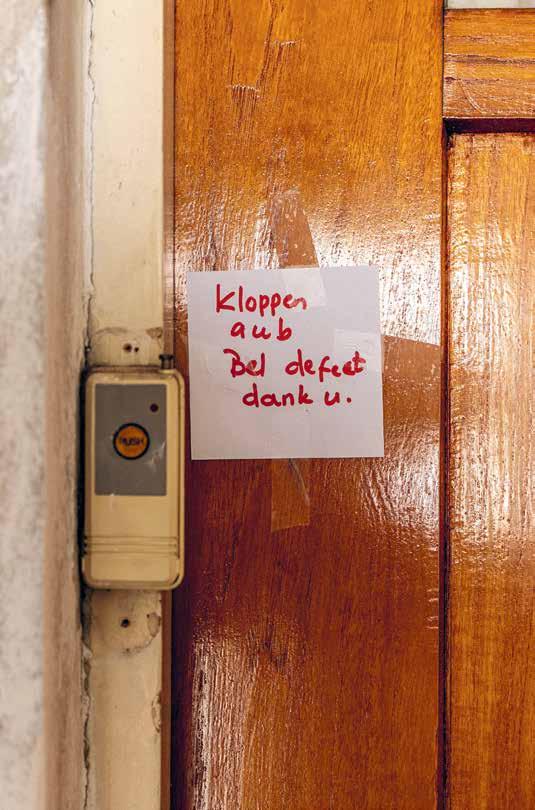 Kloppen
aub
Bel defect
dank u.
PUSH